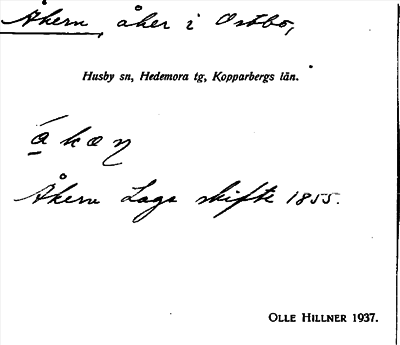 Åkern, åker i Ostbo,
Husby sn, Hedemora tg, Kopparbergs län.
åkæƞ
Åkern Laga skifte 1855.
OLLE HILLNER 1937.